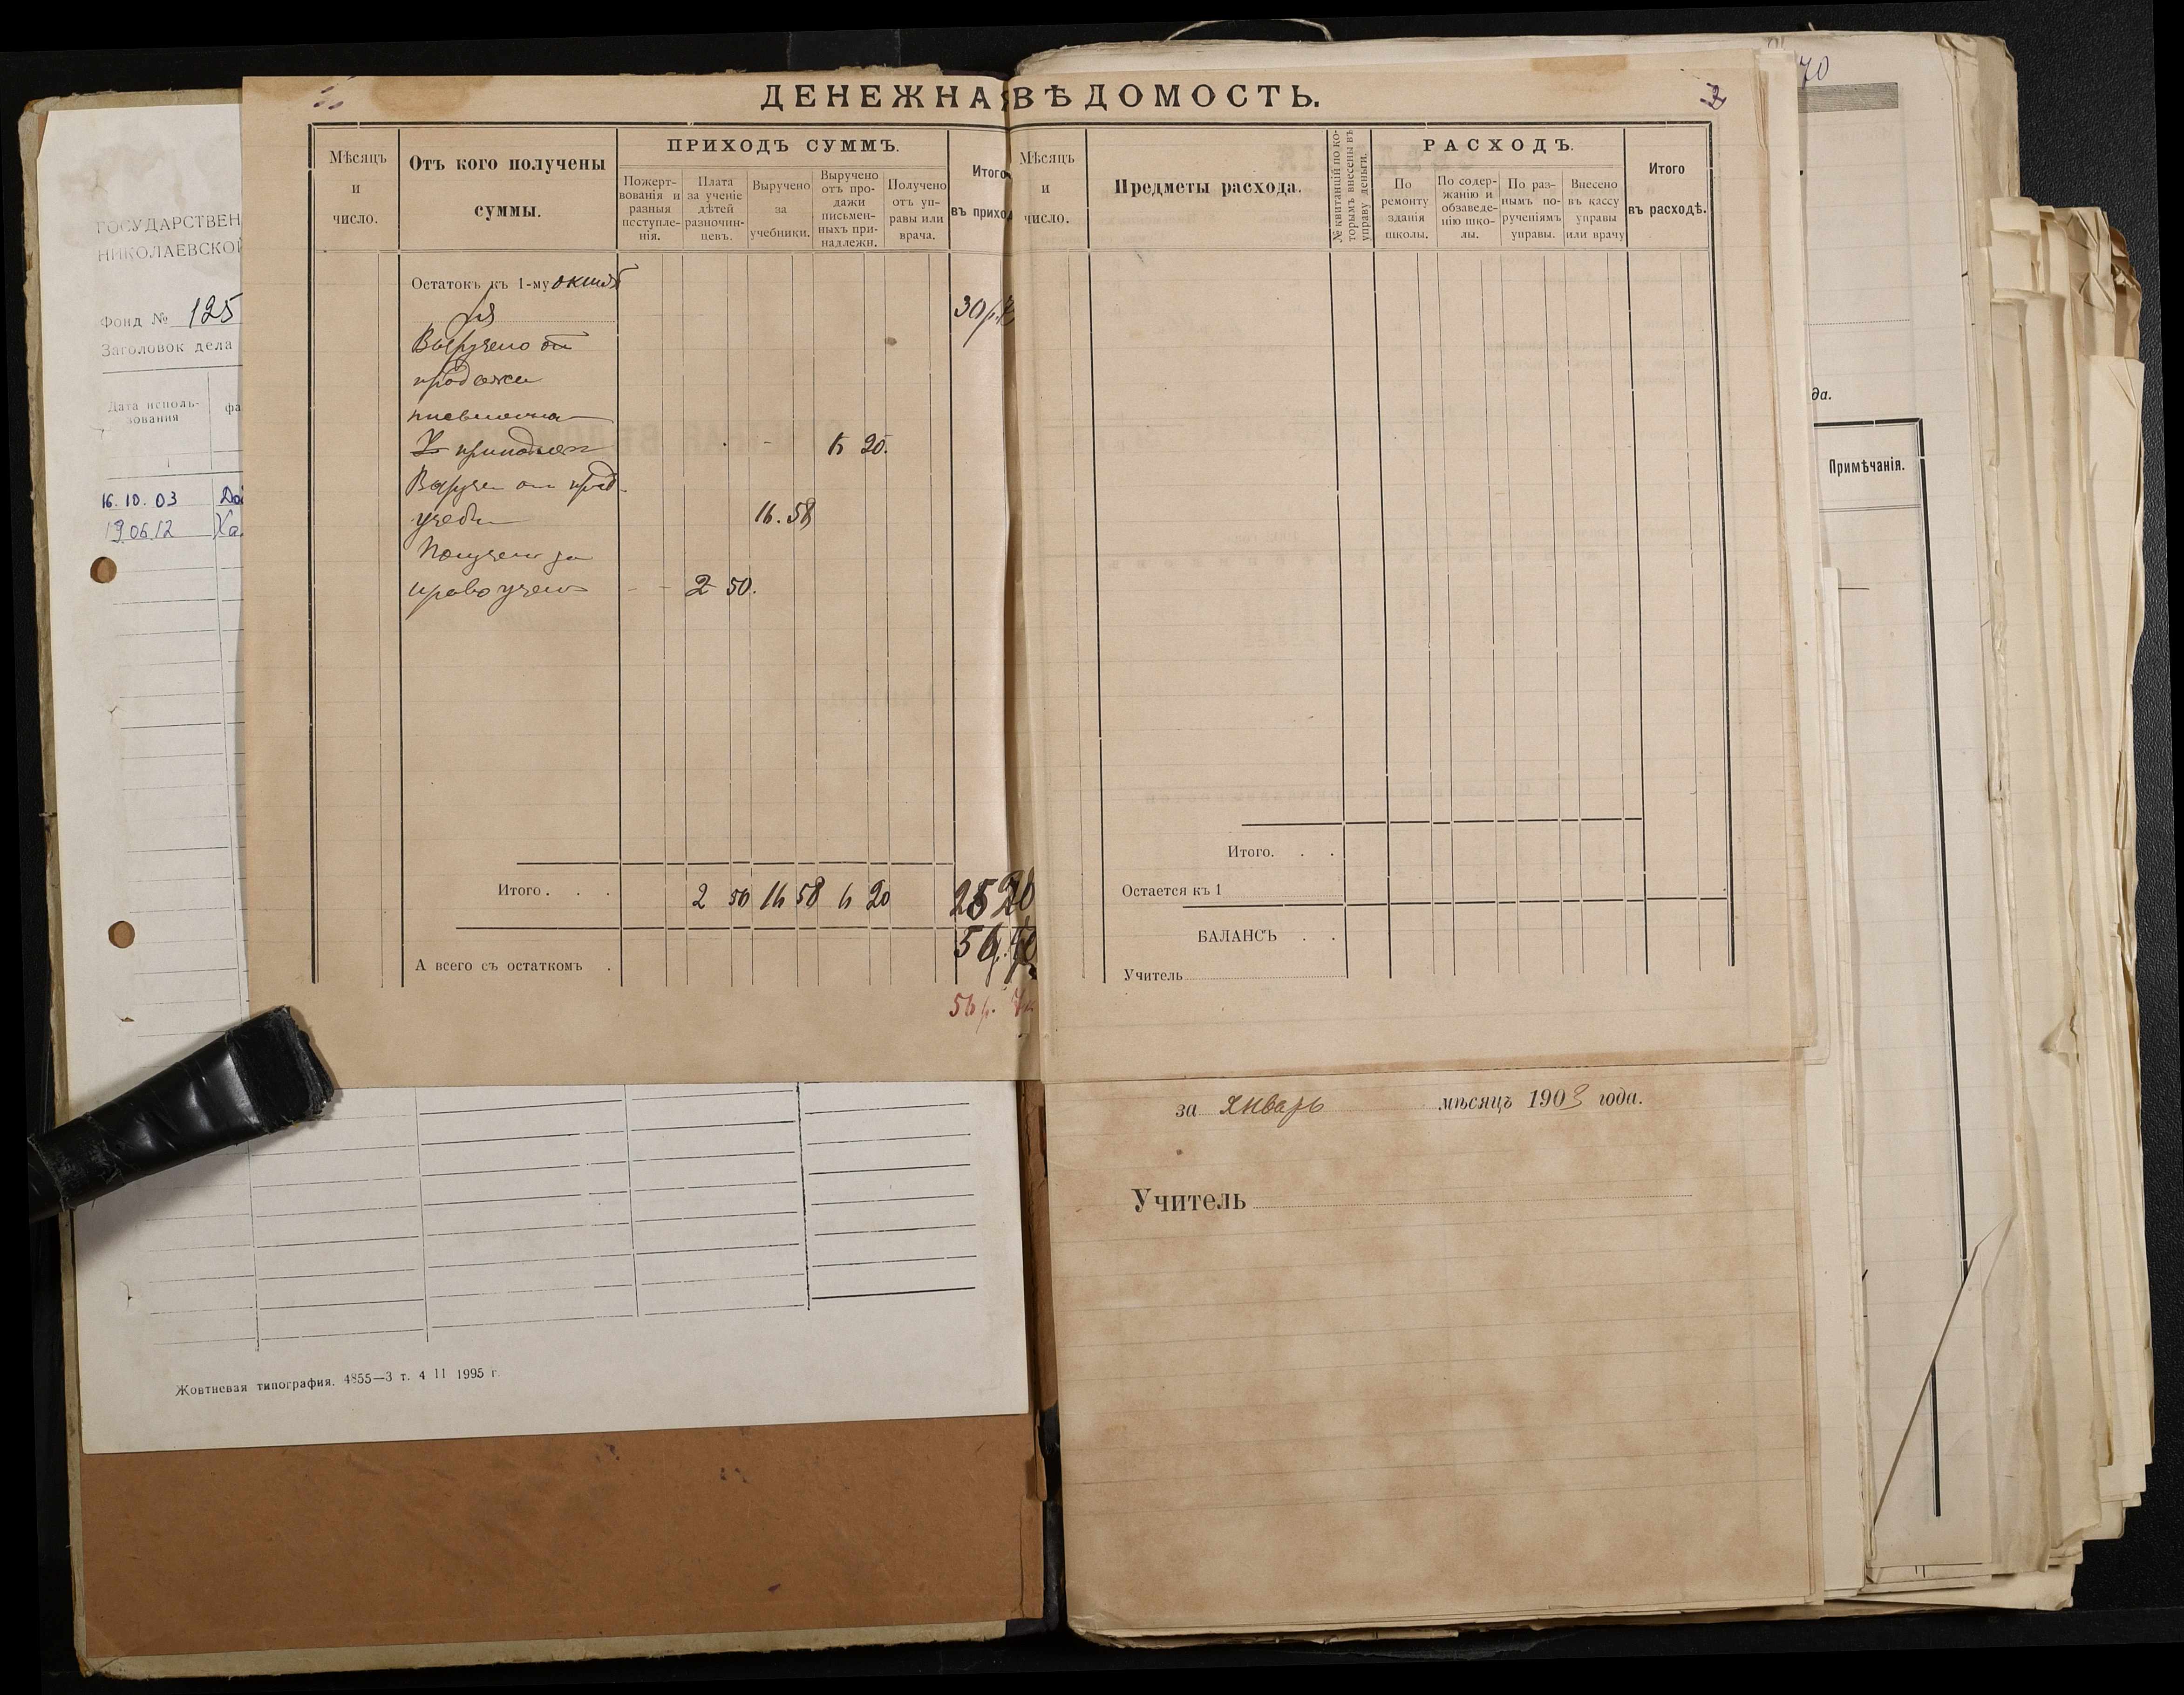 ДЕНЕЖНА ВѢДОМОСТЬ.
2
70
Мѣсяцъ
и
число.
Отъ кого получены
суммы.
ПРИХОДЪ СУММЪ.
Пожерт-
вованія и
разныя
поступле-
нія.
Плата
за ученіе
дѣтей
разночин-
цевъ.
Выручено
за
учебники.
Выручено
отъ про-
дажи
письмен-
ныхъ при-
надлежн.
Получено
отъ уп-
равы или
врача.
Итого
въ приход
Остатокъ къ 1-му октяб
ря
30 р.
Выручено от
продажи
письменна
х принадлеж 6 20.
Выручен от прод.
учебн 16. 58
Получено за
право учен 2 50.
Итого . . . 2 50 16 58 6 20 25
А всего съ остатком .
56 р.
Мѣсяцъ
и
число.
Предметы расхода.
№ квитанцій по ко-
торымъ внесены въ
управу деньги.
РАСХОДЪ.
По
ремонту
зданія
школы.
По содер-
жанію и
обзаведе-
нію шко-
лы.
По раз-
нымъ по-
рученіямъ
управы.
Внесено
въ кассу
управы
или врачу
Итого
въ расходѣ.
Итого. . .
Остается къ 1
БАЛАНСЪ . .
Учитель
за январь мѣсяцъ 1903 года.
Учитель
ГОСУДАРСТВЕН
НИКОЛАЕВСКОЙ
Фонд № 125
Заголовок дела
Дата исполь-
зования
фа
16.10.03
19.06.12 Ха
Жовтневая типография. 4855—3 т. 4 11 1995 г.
да.
Примѣчанія.